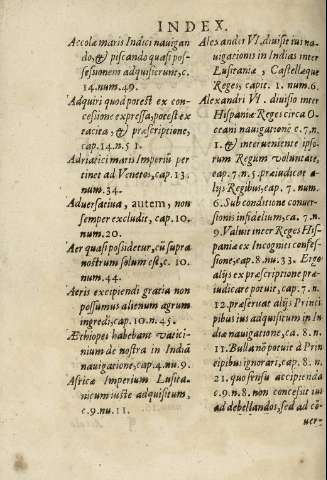 INDEX.
Accolæ maris Indici nauigan
do, & piscando quasi pos-
sessionem adquisierunt, c.
14. num. 49.
Adquiri quod potest ex con-
cessione expressa, potest ex
tacita, & præscriptione,
cap. 14. n. 51.
Adriatici maris Imperiũ per
tinet ad Venetos, cap. 13.
num. 34.
Aduersatiua, autem, non
semper excludit, cap. 10.
num. 20.
Aer quasi possidetur, cũ supra
nostrum solum est, c. 10.
num. 44.
Aeris excipiendi gratia non
possumus alienum agrum
ingredi, cap. 10. n. 45.
Æthiopes habebant vatici-
nium de nostra in Indiã
nauigatione, cap. 4. nu. 9.
Africæ Imperium Lusita-
nicum iuste adquisitum,
c. 9. nu. 11.
Alexandri VI. diuisio ius na-
uigationis in Indias inter
Lusitaniæ, Castellæque
Reges, capit. 1. num. 6.
Alexandri VI. diuisio inter
Hispaniæ Reges circa O-
ceani nauigatione c. 7. n.
1. & interueniente ipso-
rum Regum voluntate,
cap. 7. n. 5. præiudicat
alijs Regibus, cap. 7. num.
6. Sub conditione conuer-
sionis infidelium, ca. 7. n.
9. Valuit inter Reges His-
paniæ ex Incognei confes-
sione, cap. 8. nu. 33. Ergo
alijs ex præscriptione præ-
iudicare potuit, cap. 7. n.
12. præseruat alijs Princi-
pibus ius adquisitum in In
diæ nauigatione, ca. 8. n.
11. Bullanõ potuit à Prin
cipibus ignorari, cap. 8. n.
21. quo sensu accipienda
c. 9. n. 8. non concessit ius
ad debellandos, sed ad cõ-
uer-